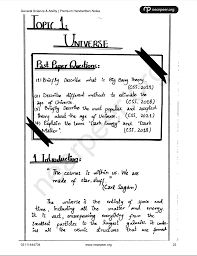 General Science & Ability | Premium Handwritten Notes
nearpeer.org
TOPIC 1:
UNIVERSE
Past Paper Questions:
(1) Briefly Describe what is Big Bang theory.
(CSS. 2021)
(2) Describe different methods to estimate the
age of Universe. (CSS. 2018)
(3) Briefly Describe the most popular and accepted
theory about the age of Universe. (CSS.
(4) Explain the term "Dark Energy" and "Dark
Matter". (CSS.
1. Introduction:
"The cosmos is within us. We are
made of star-stuff."
(Carl Sagan)
The universe is the entirety of space and
time, including all the matter and energy.
It is vast, encompassing everything from the
smallest particles to the largest galaxies. It
all the cosmic structures that are found
nearpeer.org
www.nearpeer.org